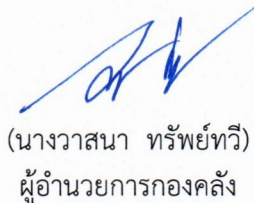 (นางวาสนา ทรัพย์ทวี)
ผู้อำนวยการกองคลัง